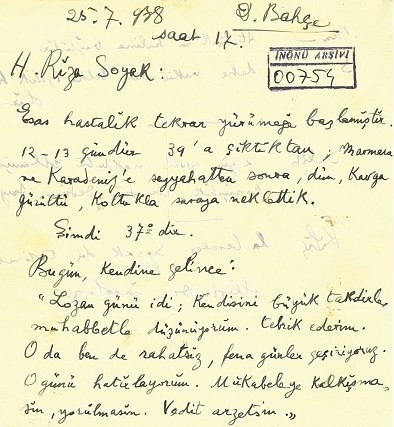 25.7.938
D. Bahçe
saat 17.
İNÖNÜ ARŞİVİ
00754
H. Rıza Soyak:
Esas hastalık tekrar yürümağa başlamıştır.
12-13 gündür 39'a çıktıktan; Marmara
ve Karadeniz'e seyyahatten sonra, dün, Kavga
gürültü, Koltukla saraya naklettik.
Şimdi 37° dir.
Bugün, kendine gelince:
"Lozan günü idi; Kendisini büyük takdirler
muhabbetle düşünüyorum. tebrik ederim.
O da ben de rahatsız, fena günler geçiriyoruz.
O günü hatırlayorum. Mukabeleye kalkışma-
sın, yorulmasın. Vedit arzetsin.„